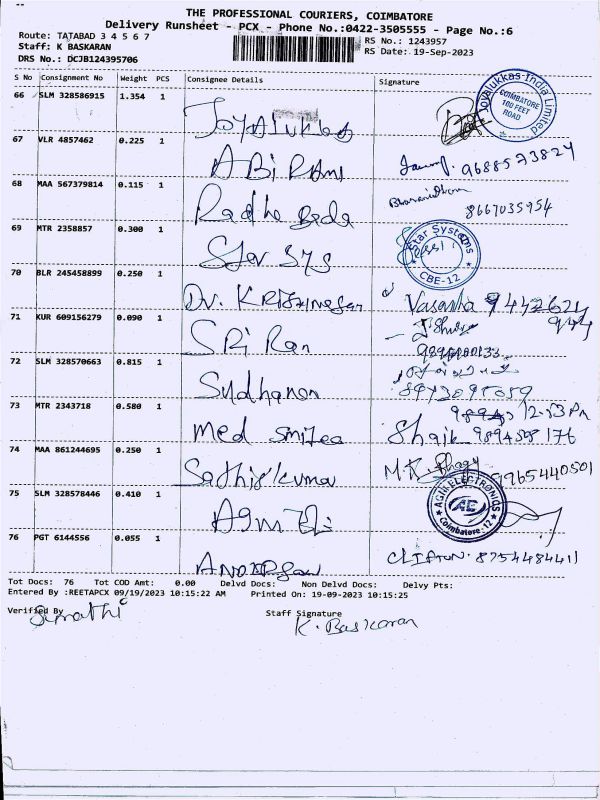 THE PROFESSIONAL COURIERS, COIMBATORE
Delivery Runsheet - PCX - Phone No.:0422-3505555 - Page No.:6
Route: TATABAD 3 4 5 6 7
RS No.: 1243957
Staff: K BASKARAN
RS Date: 19-Sep-2023
DRS No.: DCJB124395706
S No Consignment No Weight PCS Consignee Details Signature
66 SLM 328586915 1.354 1 Joyalukkas
Joyalukkas India Limited COIMBATORE 100 FEET ROAD
67 VLR 4857462 0.225 1 ABi RAmi 9688573824
68 MAA 567379814 0.115 1 Radha Bharanidharan 8667035954
69 MTR 2358857 0.300 1 Star SYS Star Systems CBE-12
70 BLR 245458899 0.250 1 Dr. Vasantha
71 KUR 609156279 0.090 1 SRi Ran
72 SLM 328570663 0.815 1 Sudhanan
73 MTR 2343718 0.580 1 med 12-53 Pm
Shaik 9894508176
74 MAA 861244695 0.250 1 Sathiskumar 9965440501
75 SLM 328578446 0.410 1 AGILE ELECTRONICS AE Coimbatore-12
76 PGT 6144556 0.055 1 CLIFTON. 8754484411
Tot Docs: 76 Tot COD Amt: 0.00 Delvd Docs: Non Delvd Docs: Delvy Pts:
Entered By :REETAPCX 09/19/2023 10:15:22 AM Printed On: 19-09-2023 10:15:25
Verified By Staff Signature
K. Baskaran